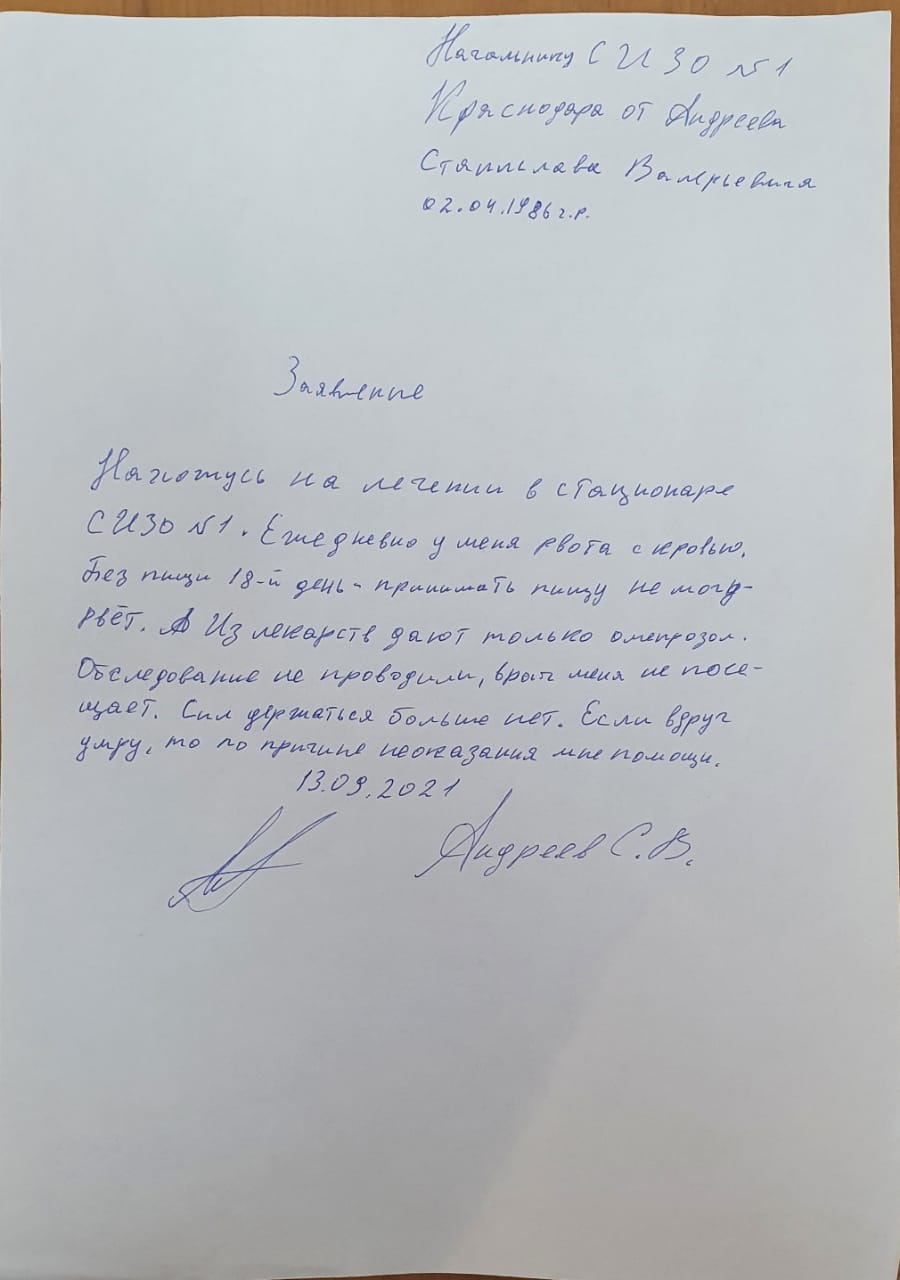 Начальнику СИЗО №1
Краснодара от Андреева
Станислава Валерьевича
02.04.1986 г.р.
Заявление
Нахожусь на лечении в стационаре
СИЗО №1. Ежедневно у меня рвота с кровью.
Без пищи 18-й день - принимать пищу не могу-
рвёт. Из лекарств дают только омепрозол.
Обследование не проводили, врач меня не посе-
щает. Сил держаться больше нет. Если вдруг
умру, то по причине неоказания мне помощи.
13.09.2021
Андреев С.В.